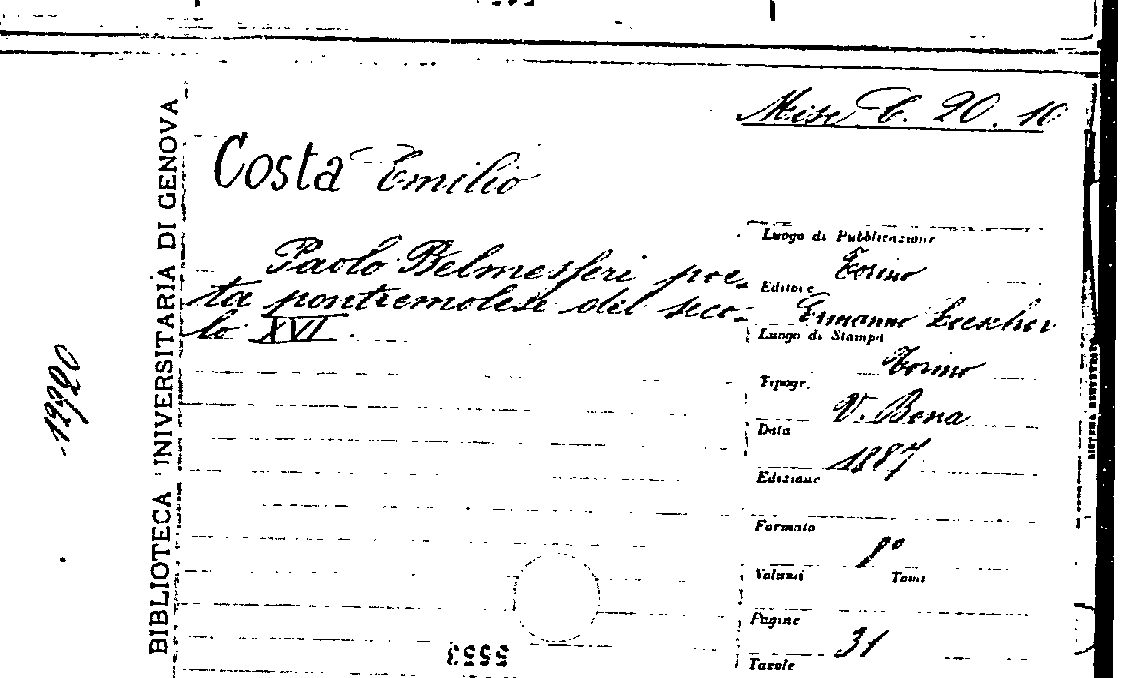 Misc. C. 20. 10
Costa Emilio
Paolo Belmesseri poe-
ta pontremolese del seco-
lo XVI.
Luogo di Pubblicazione
Torino
Editore
Ermanno Loescher
Luogo di Stampa
Torino
Tipogr.
V. Bona
Data
1887
Edizione
Formato
8°
Volumi Tomi
Pagine
31
Tavole
BIBLIOTECA UNIVERSITARIA DI GENOVA
5553